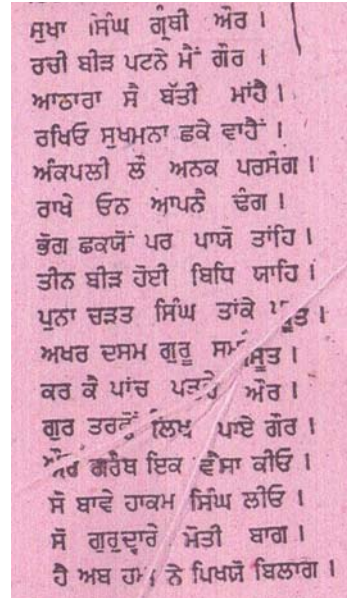 ਸੁਖਾ ਸਿੰਘ ਗ੍ਰੰਥੀ ਔਰ ।
ਰਚੀ ਬੀੜ ਪਟਨੇ ਮੈਂ ਗੌਰ ।
ਆਠਾਰਾ ਸੈ ਬੱਤੀ ਮਾਂਹੈ ।
ਰਖਿਓ ਸੁਖਮਨਾ ਛਕੇ ਵਾਹੈਂ ।
ਅੰਕਪਲੀ ਲੌ ਅਨਕ ਪਰਸੰਗ ।
ਰਾਖੇ ਓਨ ਆਪਨੈ ਢੰਗ ।
ਭੋਗ ਛਕਯੋਂ ਪਰ ਪਾਯੋ ਤਾਂਹਿ ।
ਤੀਨ ਬੀੜ ਹੋਈ ਬਿਧਿ ਯਾਹਿ ।
ਪੁਨਾ ਚੜਤ ਸਿੰਘ ਤਾਂਕੇ ।
ਅਖਰ ਦਸਮ ਗੁਰੂ ।
ਕਰ ਕੈ ਪਾਂਚ ਔਰ ।
ਗੁਰ ਲਿਖ ਪਾਏ ਗੌਰ ।
ਔਰ ਗਰੰਥ ਇਕ ਵੈਸਾ ਕੀਓ ।
ਸੋ ਬਾਵੇ ਹਾਕਮ ਸਿੰਘ ਲੀਓ ।
ਸੋ ਗੁਰੁਦ੍ਵਾਰੇ ਮੋਤੀ ਬਾਗ ।
ਹੈ ਅਬ ਹਮ ਨੇ ਪਿਖਯੋ ਬਿਲਾਗ ।